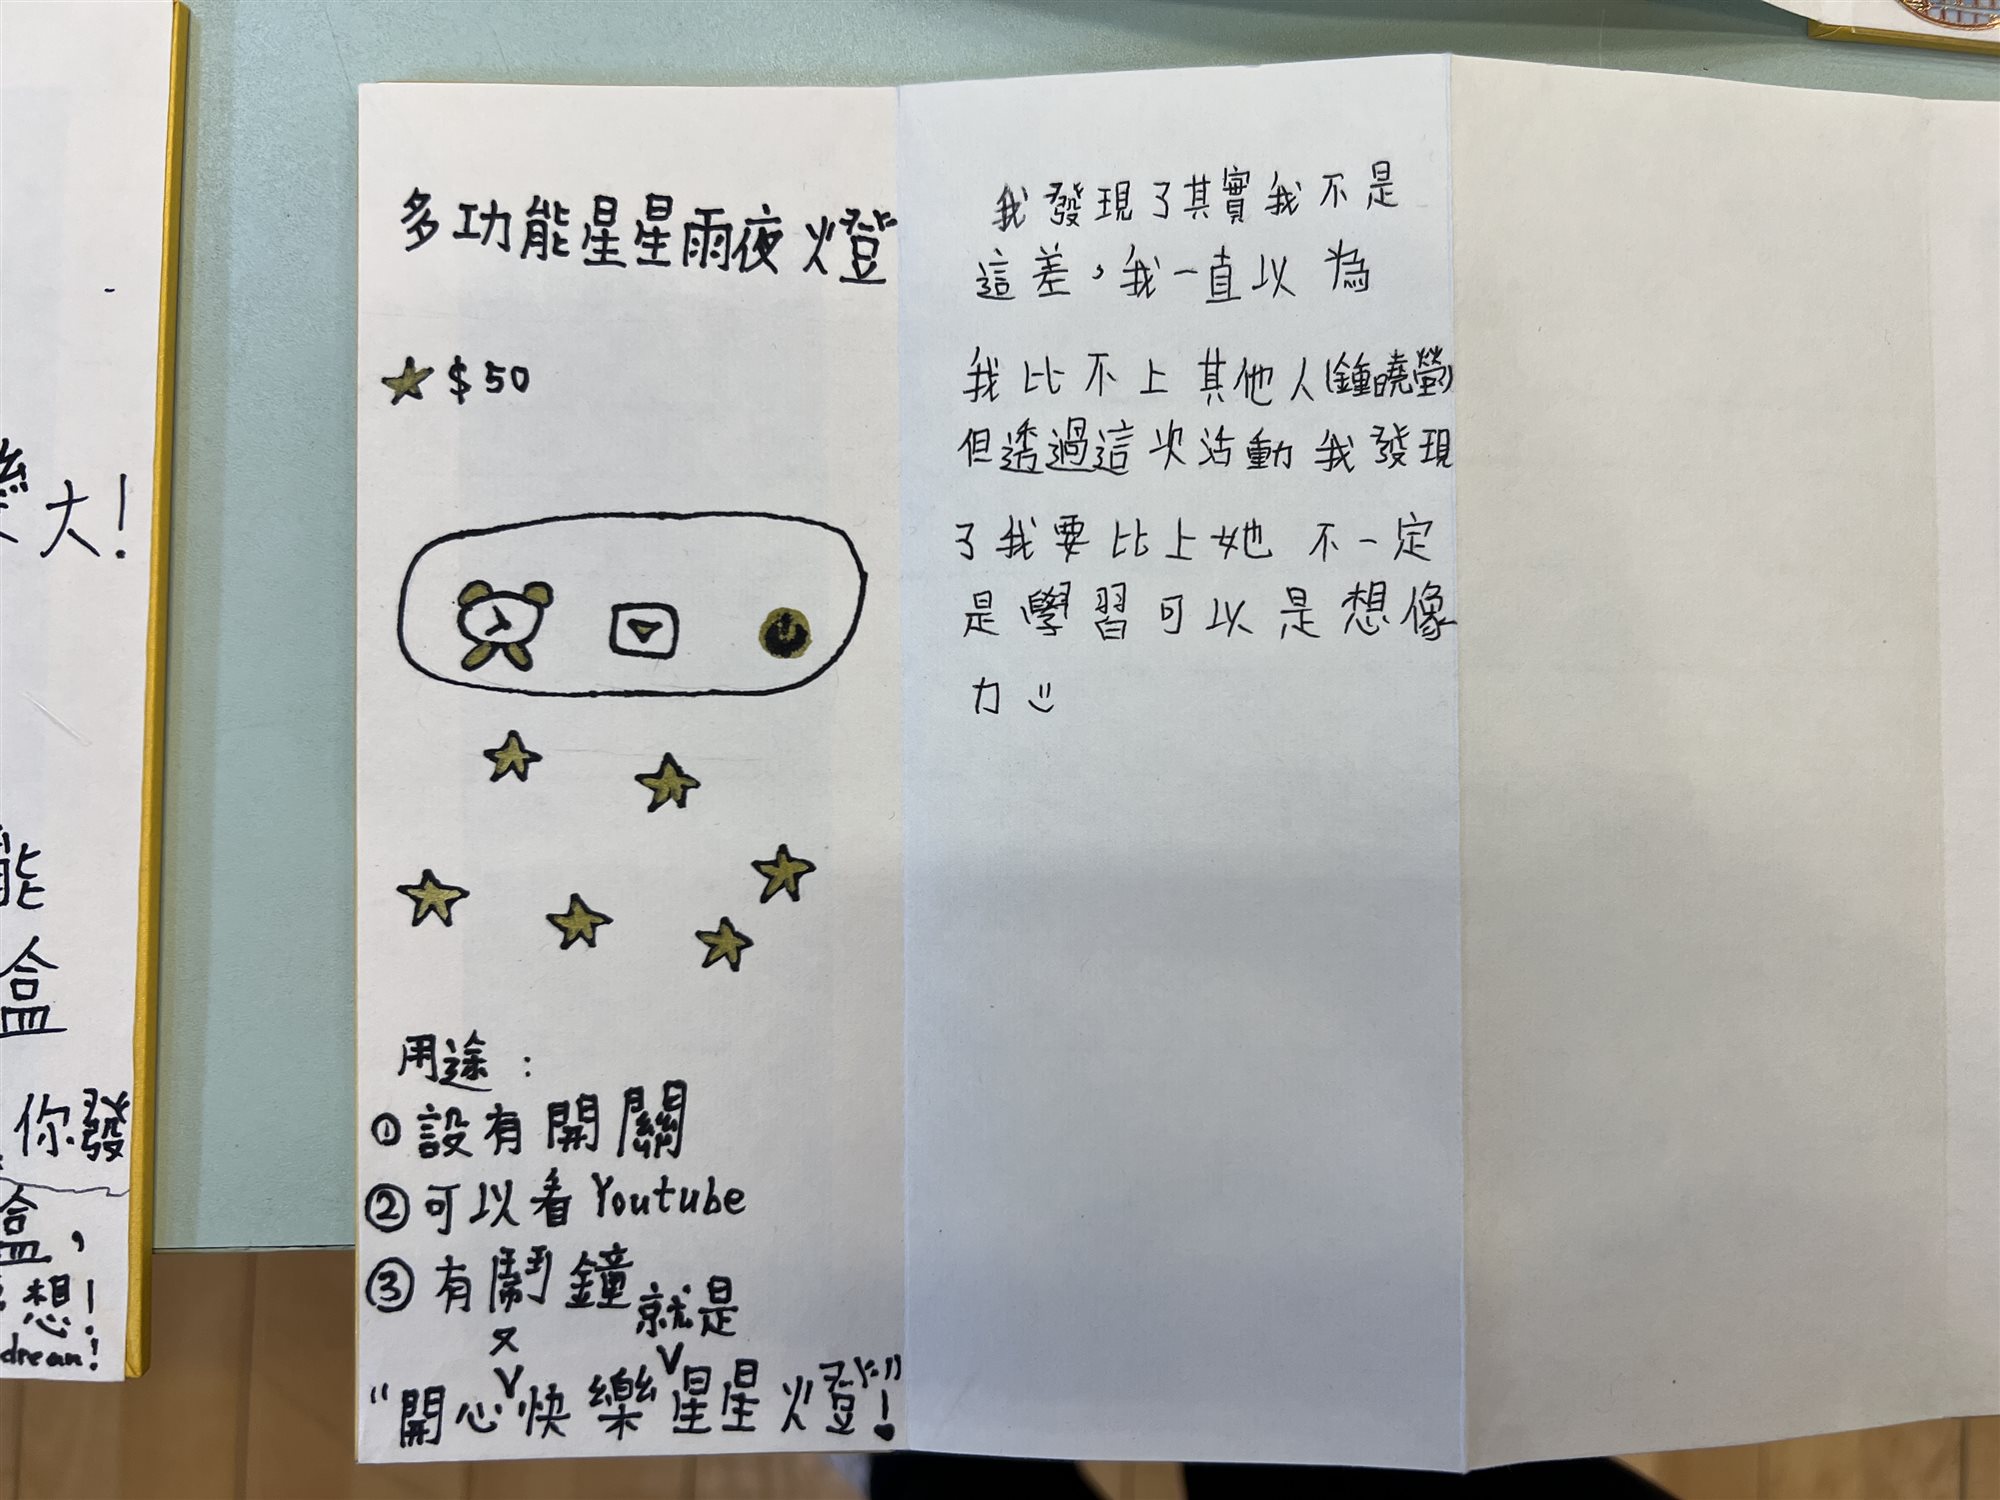 大!
能
盒
你發
盒,
想!
dream!
多功能星星雨夜燈
$50
用途:
①設有開關
②可以看Youtube
③有鬧鐘
又 就是
"開心快樂星星燈"!
我發現了其實我不是
這差,我一直以為
我比不上其他人(鍾曉瑩)
但透過這次活動我發現
了我要比上她不一定
是學習可以是想像
力